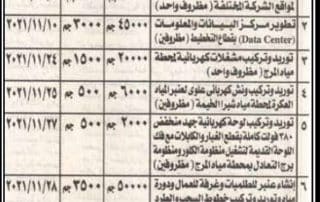 لمواقع الشركة المختلفة (مظروف واحد)
٢ تطوير مركز البيانات والمعلومات (Data Center) بقطاع التخطيط (مظروفين) ٤٥٠٠٠ جم ٣٠٠٠ جم ٢٠٢١/١١/١٠
٣ توريد وتركيب مشغلات كهربائية لمحطة مياه المرج (مظروف واحد) ٢٠٠٠٠ جم ١٥٠٠ جم ٢٠٢١/١١/٢٤
٤ توريد وتركيب ونش كهربائى علوى لعنبر المياه العكرة لمحطة مياه شبرا الخيمة (مظروفين) ٦٠٠٠ جم ٥٠٠ جم ٢٠٢١/١١/٢٥
٥ توريد وتركيب لوحة كهربائية جهد منخفض ٣٨٠ فولت كاملة بقطع الغيار والكابلات مع فك اللوحة القديمة لتشغيل منظومة الكلور ومنظومة برج التعادل بمحطة مياه المرج (مظروفين) ٢٠٠٠ جم ٥٠٠ جم ٢٠٢١/١١/٢٧
٦ إنشاء عنبر للطلمبات وغرفة للعمال ودورة مياه وتوريد وتركيب خطوط السحب والطرد ٥٠٠٠٠ جم ٣٥٠٠ جم ٢٠٢١/١١/٢٨